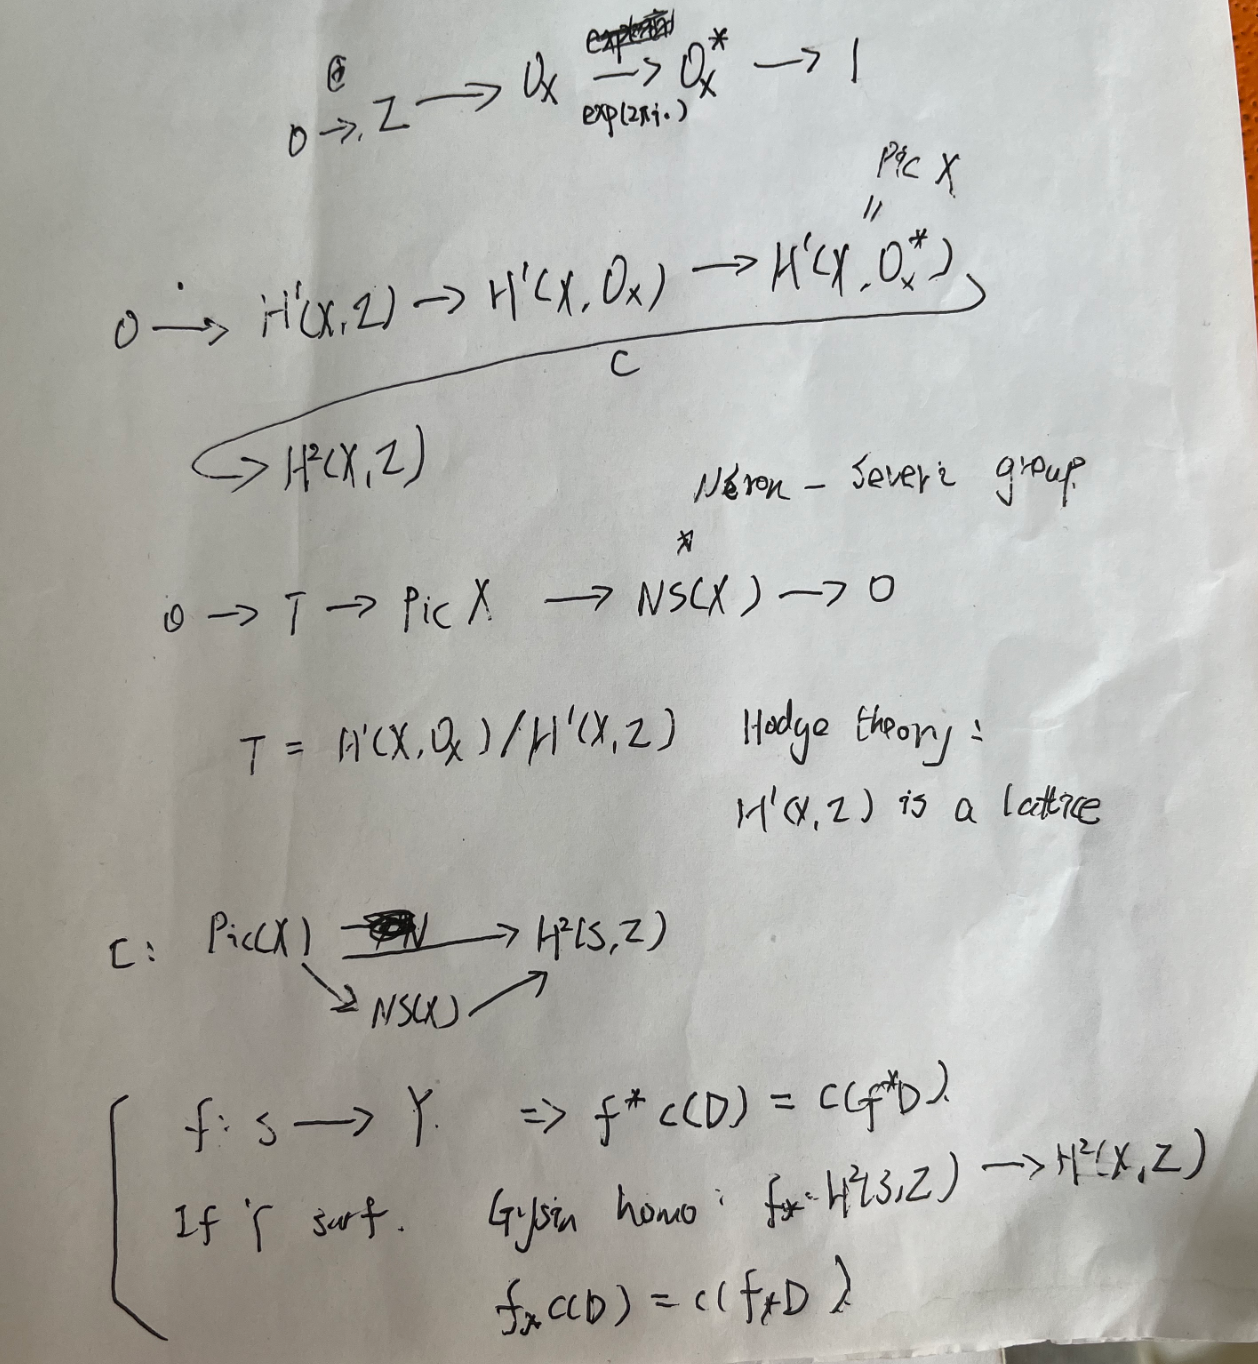 0 → Z → O_X → O_X^* → 1
exp(2πi·)
Pic X
||
0 → H^1(X, Z) → H^1(X, O_X) → H^1(X, O_X^*)
C
→ H^2(X, Z)
Néron - Severi group
*
0 → T → Pic X → NS(X) → 0
T = H^1(X, O_X) / H^1(X, Z) Hodge theory:
H^1(X, Z) is a lattice
C: Pic(X) → H^2(S, Z)
↘ NS(X) ↗
f: S → Y. ⇒ f^* c(D) = c(f^*D)
If Y surf. Gysin homo: f_*: H^2(S, Z) → H^2(X, Z)
f_* c(D) = c(f_*D)